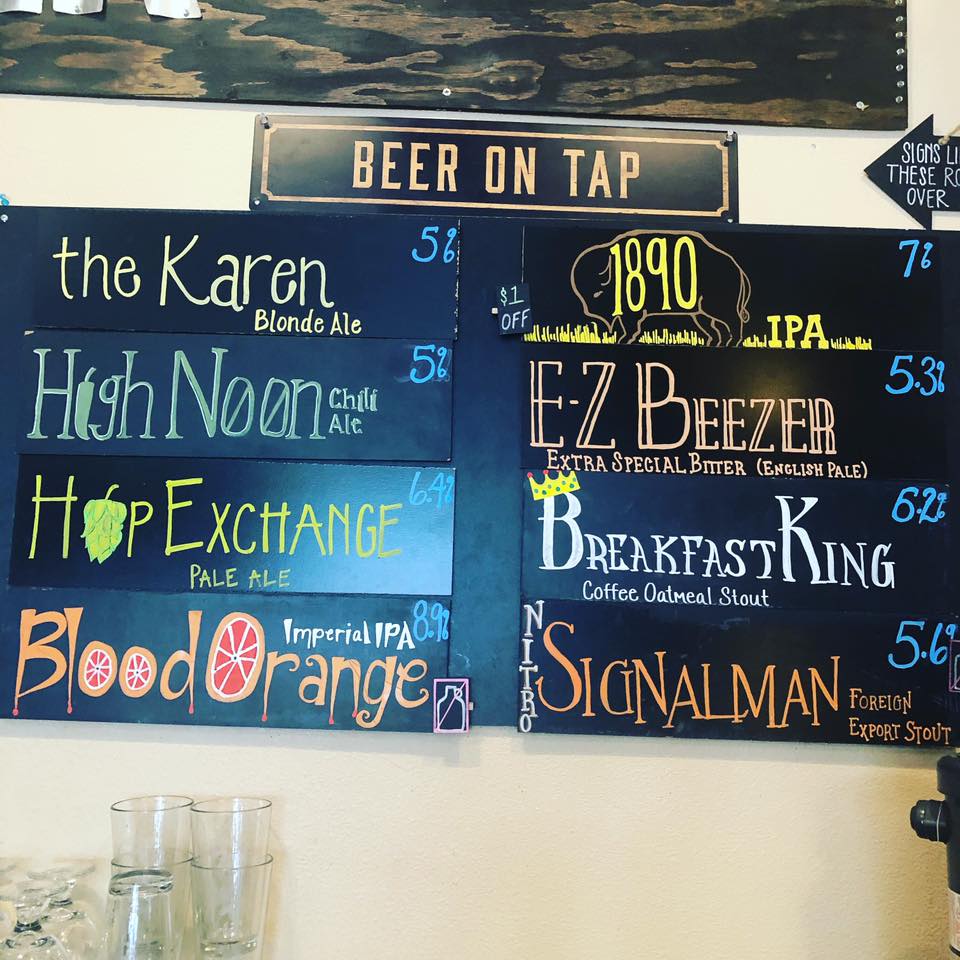 BEER ON TAP
SIGNS LI
THESE RO
OVER
the Karen 5%
Blonde Ale
High Noon Chili Ale 5%
Hop Exchange 6.4%
PALE ALE
Blood Orange Imperial IPA 8.9%
$1 OFF
1890 7%
IPA
E-Z BEEZER 5.3%
EXTRA SPECIAL BITTER (ENGLISH PALE)
BREAKFAST KING 6.2%
Coffee Oatmeal Stout
NITRO
SIGNALMAN 5.6
FOREIGN
EXPORT STOUT